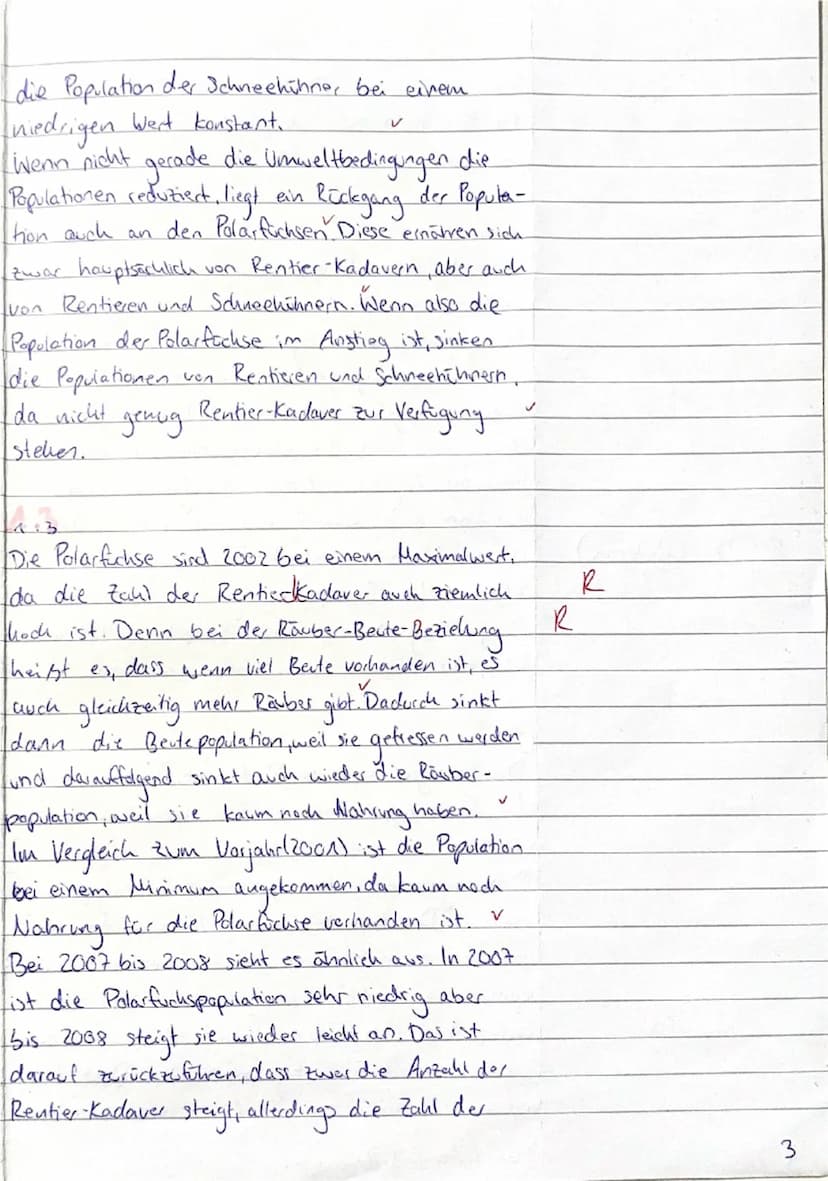 die Population der Schneehühner bei einem
niedrigen Wert konstant.
Wenn nicht gerade die Umweltbedingungen die
Populationen reduziert, liegt ein Rückgang der Popula-
tion auch an den Polarfüchsen. Diese ernähren sich
zwar hauptsächlich von Rentier-Kadavern, aber auch
von Rentieren und Schneehühnern. Wenn also die
Population der Polarfüchse im Anstieg ist, sinken
die Populationen von Rentieren und Schneehühnern,
da nicht genug Rentier-Kadaver zur Verfügung
stehen.
1.3
Die Polarfüchse sind 2002 bei einem Maximalwert,
da die Zahl der Rentier Kadaver auch ziemlich R
hoch ist. Denn bei der Räuber-Beute-Beziehung R
heißt es, dass wenn viel Beute vorhanden ist, es
auch gleichzeitig mehr Räuber gibt. Dadurch sinkt
dann die Beutepopulation, weil sie gefressen werden
und darauffolgend sinkt auch wieder die Räuber-
population, weil sie kaum noch Nahrung haben.
Im Vergleich zum Vorjahr (2001) ist die Population
bei einem Minimum angekommen, da kaum noch
Nahrung für die Polarfüchse vorhanden ist.
Bei 2007 bis 2008 sieht es ähnlich aus. In 2007
ist die Polarfuchspopulation sehr niedrig aber
bis 2008 steigt sie wieder leicht an. Das ist
darauf zurückzuführen, dass zwar die Anzahl der
Rentier-Kadaver steigt, allerdings die Zahl der
3